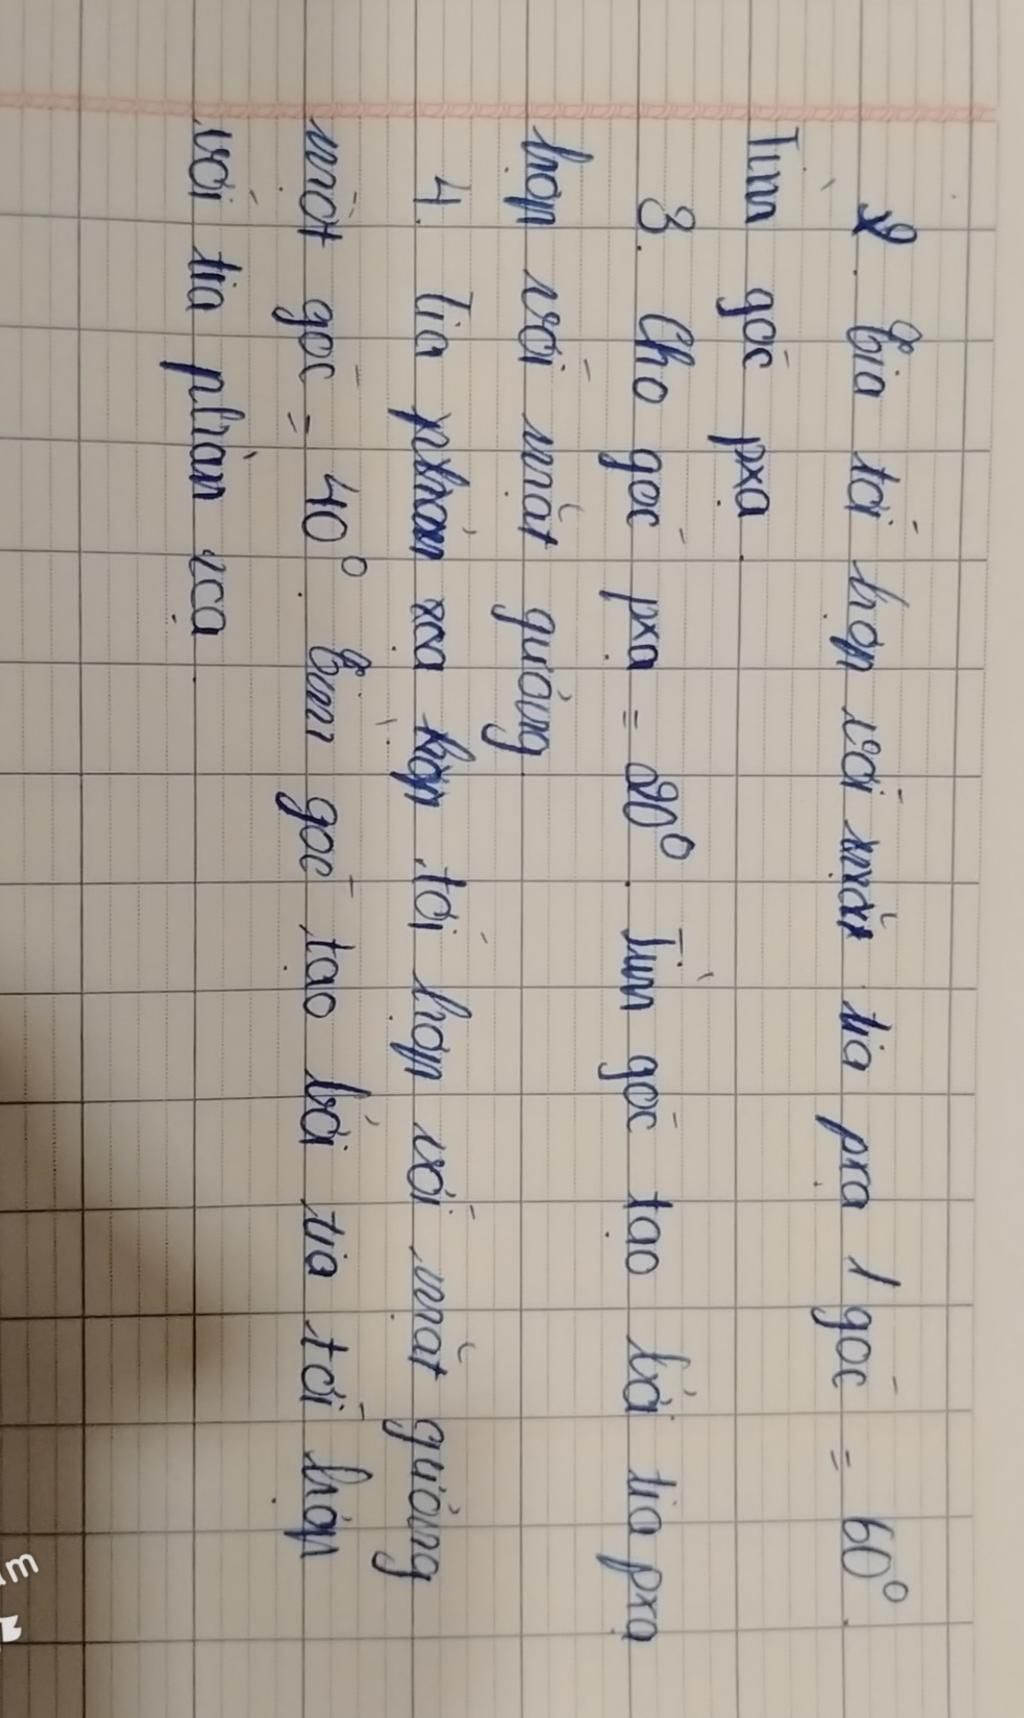 2. Tia tới hợp với tia pxạ 1 góc = 60°.
Tìm góc pxạ.
3. Cho góc pxạ = 20°. Tìm góc tạo bởi tia pxạ
hợp với mặt gương
4. Tia tới hợp với mặt gương
một góc = 40°. Tìm góc tạo bởi tia tới hợp
với tia phản xạ.